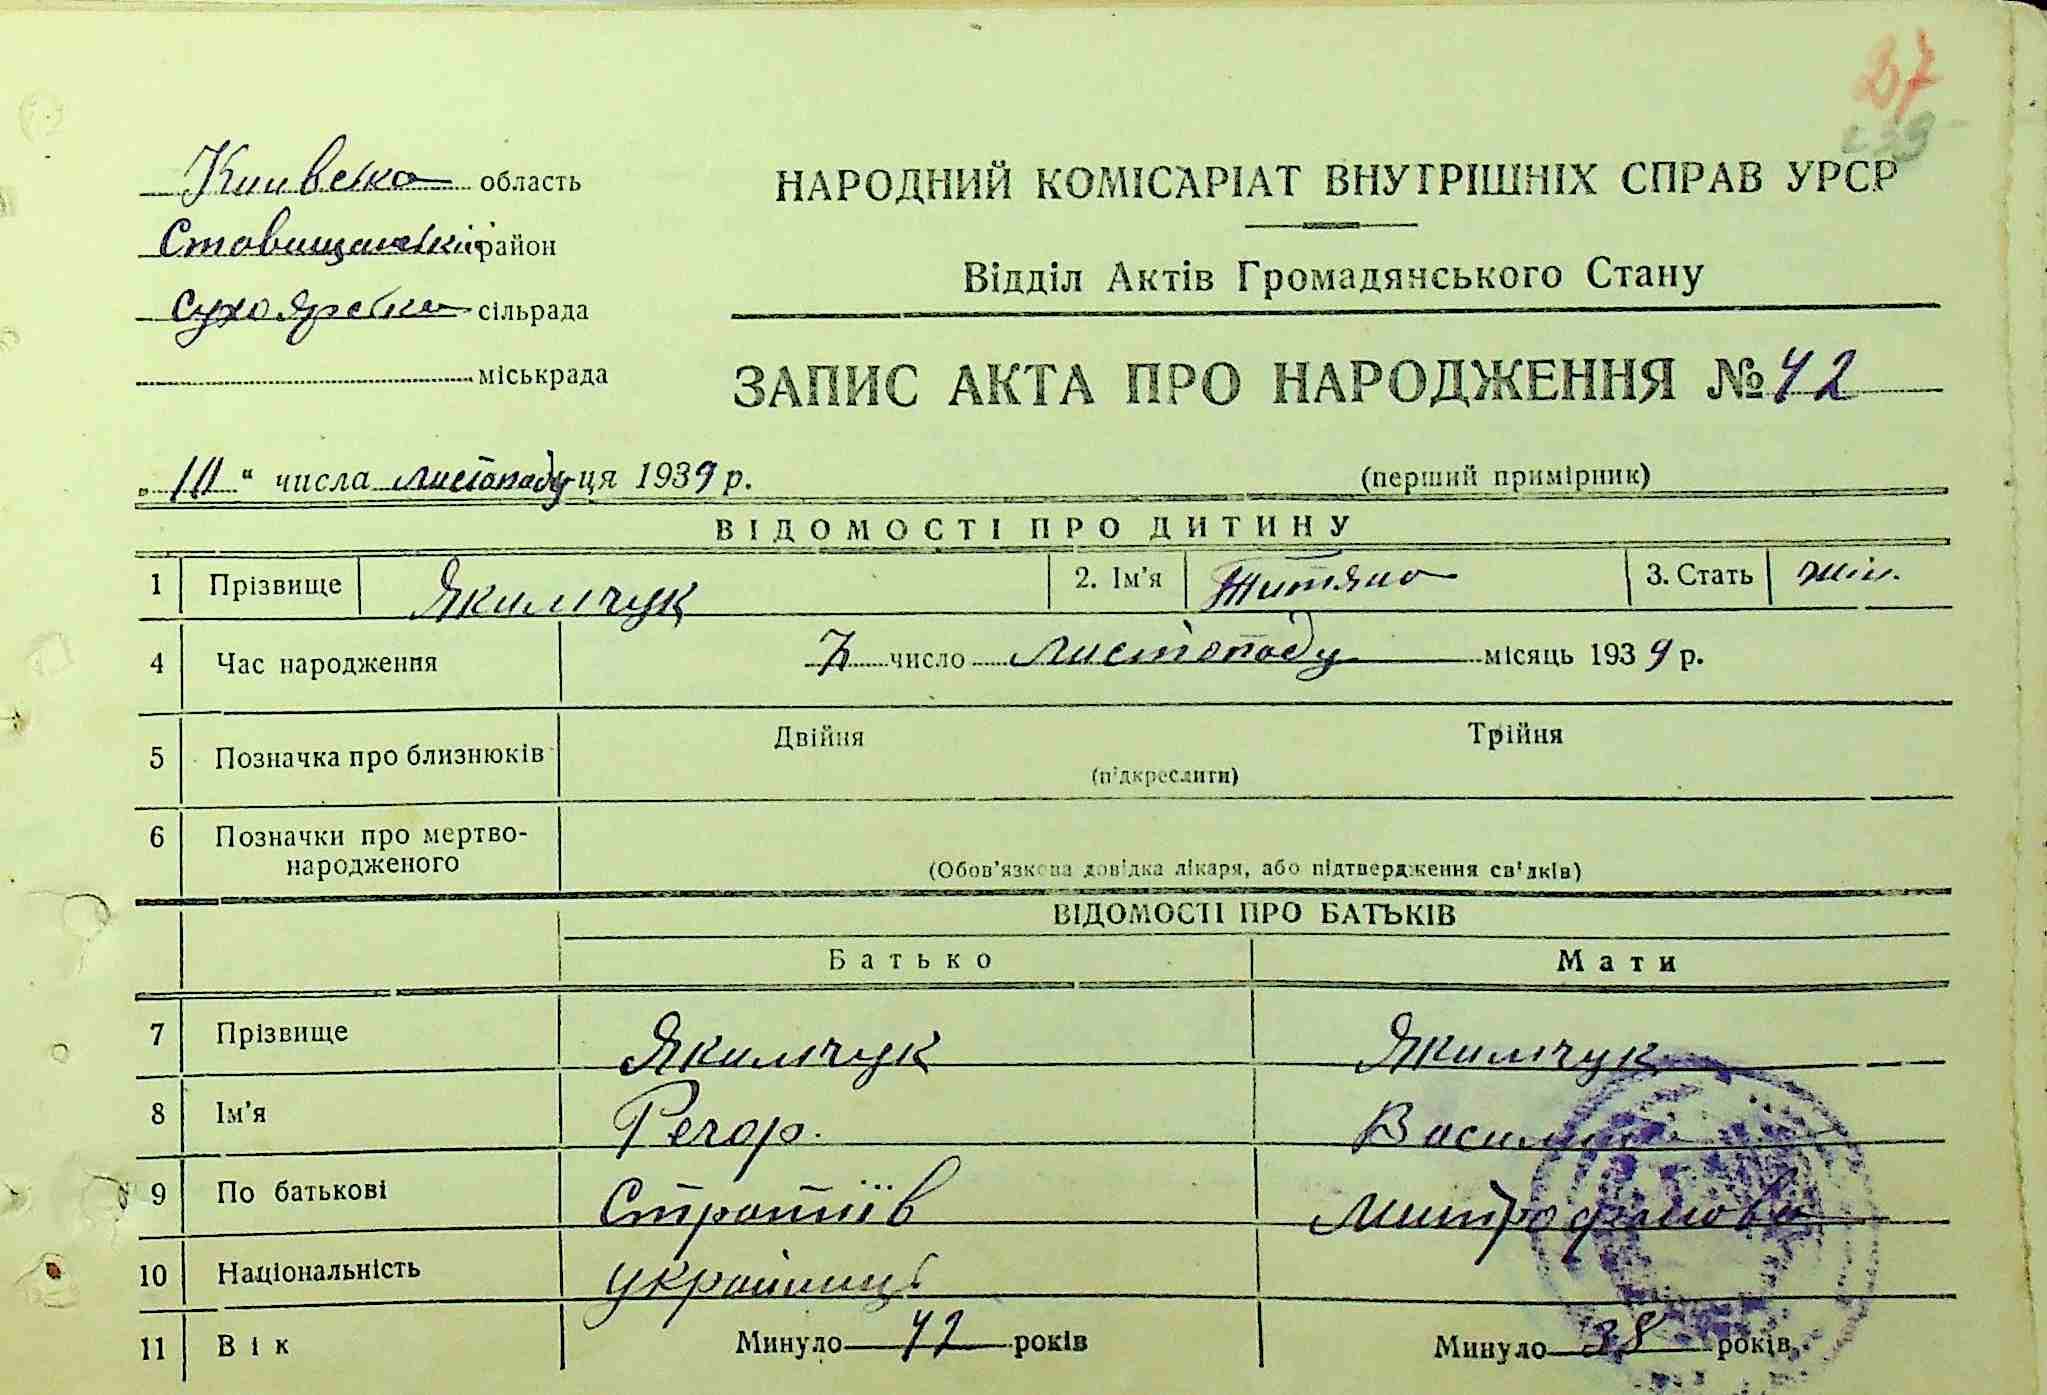 27
Київська область
Ставищанський район
Сухоярська сільрада
міськрада
НАРОДНИЙ КОМІСАРІАТ ВНУТРІШНІХ СПРАВ УРСР
Відділ Актів Громадянського Стану
ЗАПИС АКТА ПРО НАРОДЖЕННЯ № 42
„10“ числа листопаду ця 1939 р. (перший примірник)
ВІДОМОСТІ ПРО ДИТИНУ
1 Прізвище Якимчук 2. Ім'я Титяна 3. Стать жін.
4 Час народження 7 число листопаду місяць 1939 р.
5 Позначка про близнюків Двійня Трійня
(підкреслити)
6 Позначки про мертво-
народженого
(Обов'язкова довідка лікаря, або підтвердження свідків)
ВІДОМОСТІ ПРО БАТЬКІВ
Батько Мати
7 Прізвище Якимчук Якимчук
8 Ім'я Регор. Василина
9 По батькові Стратіїв Митрофанова
10 Національність українець
11 Вік Минуло 42 років Минуло 38 років